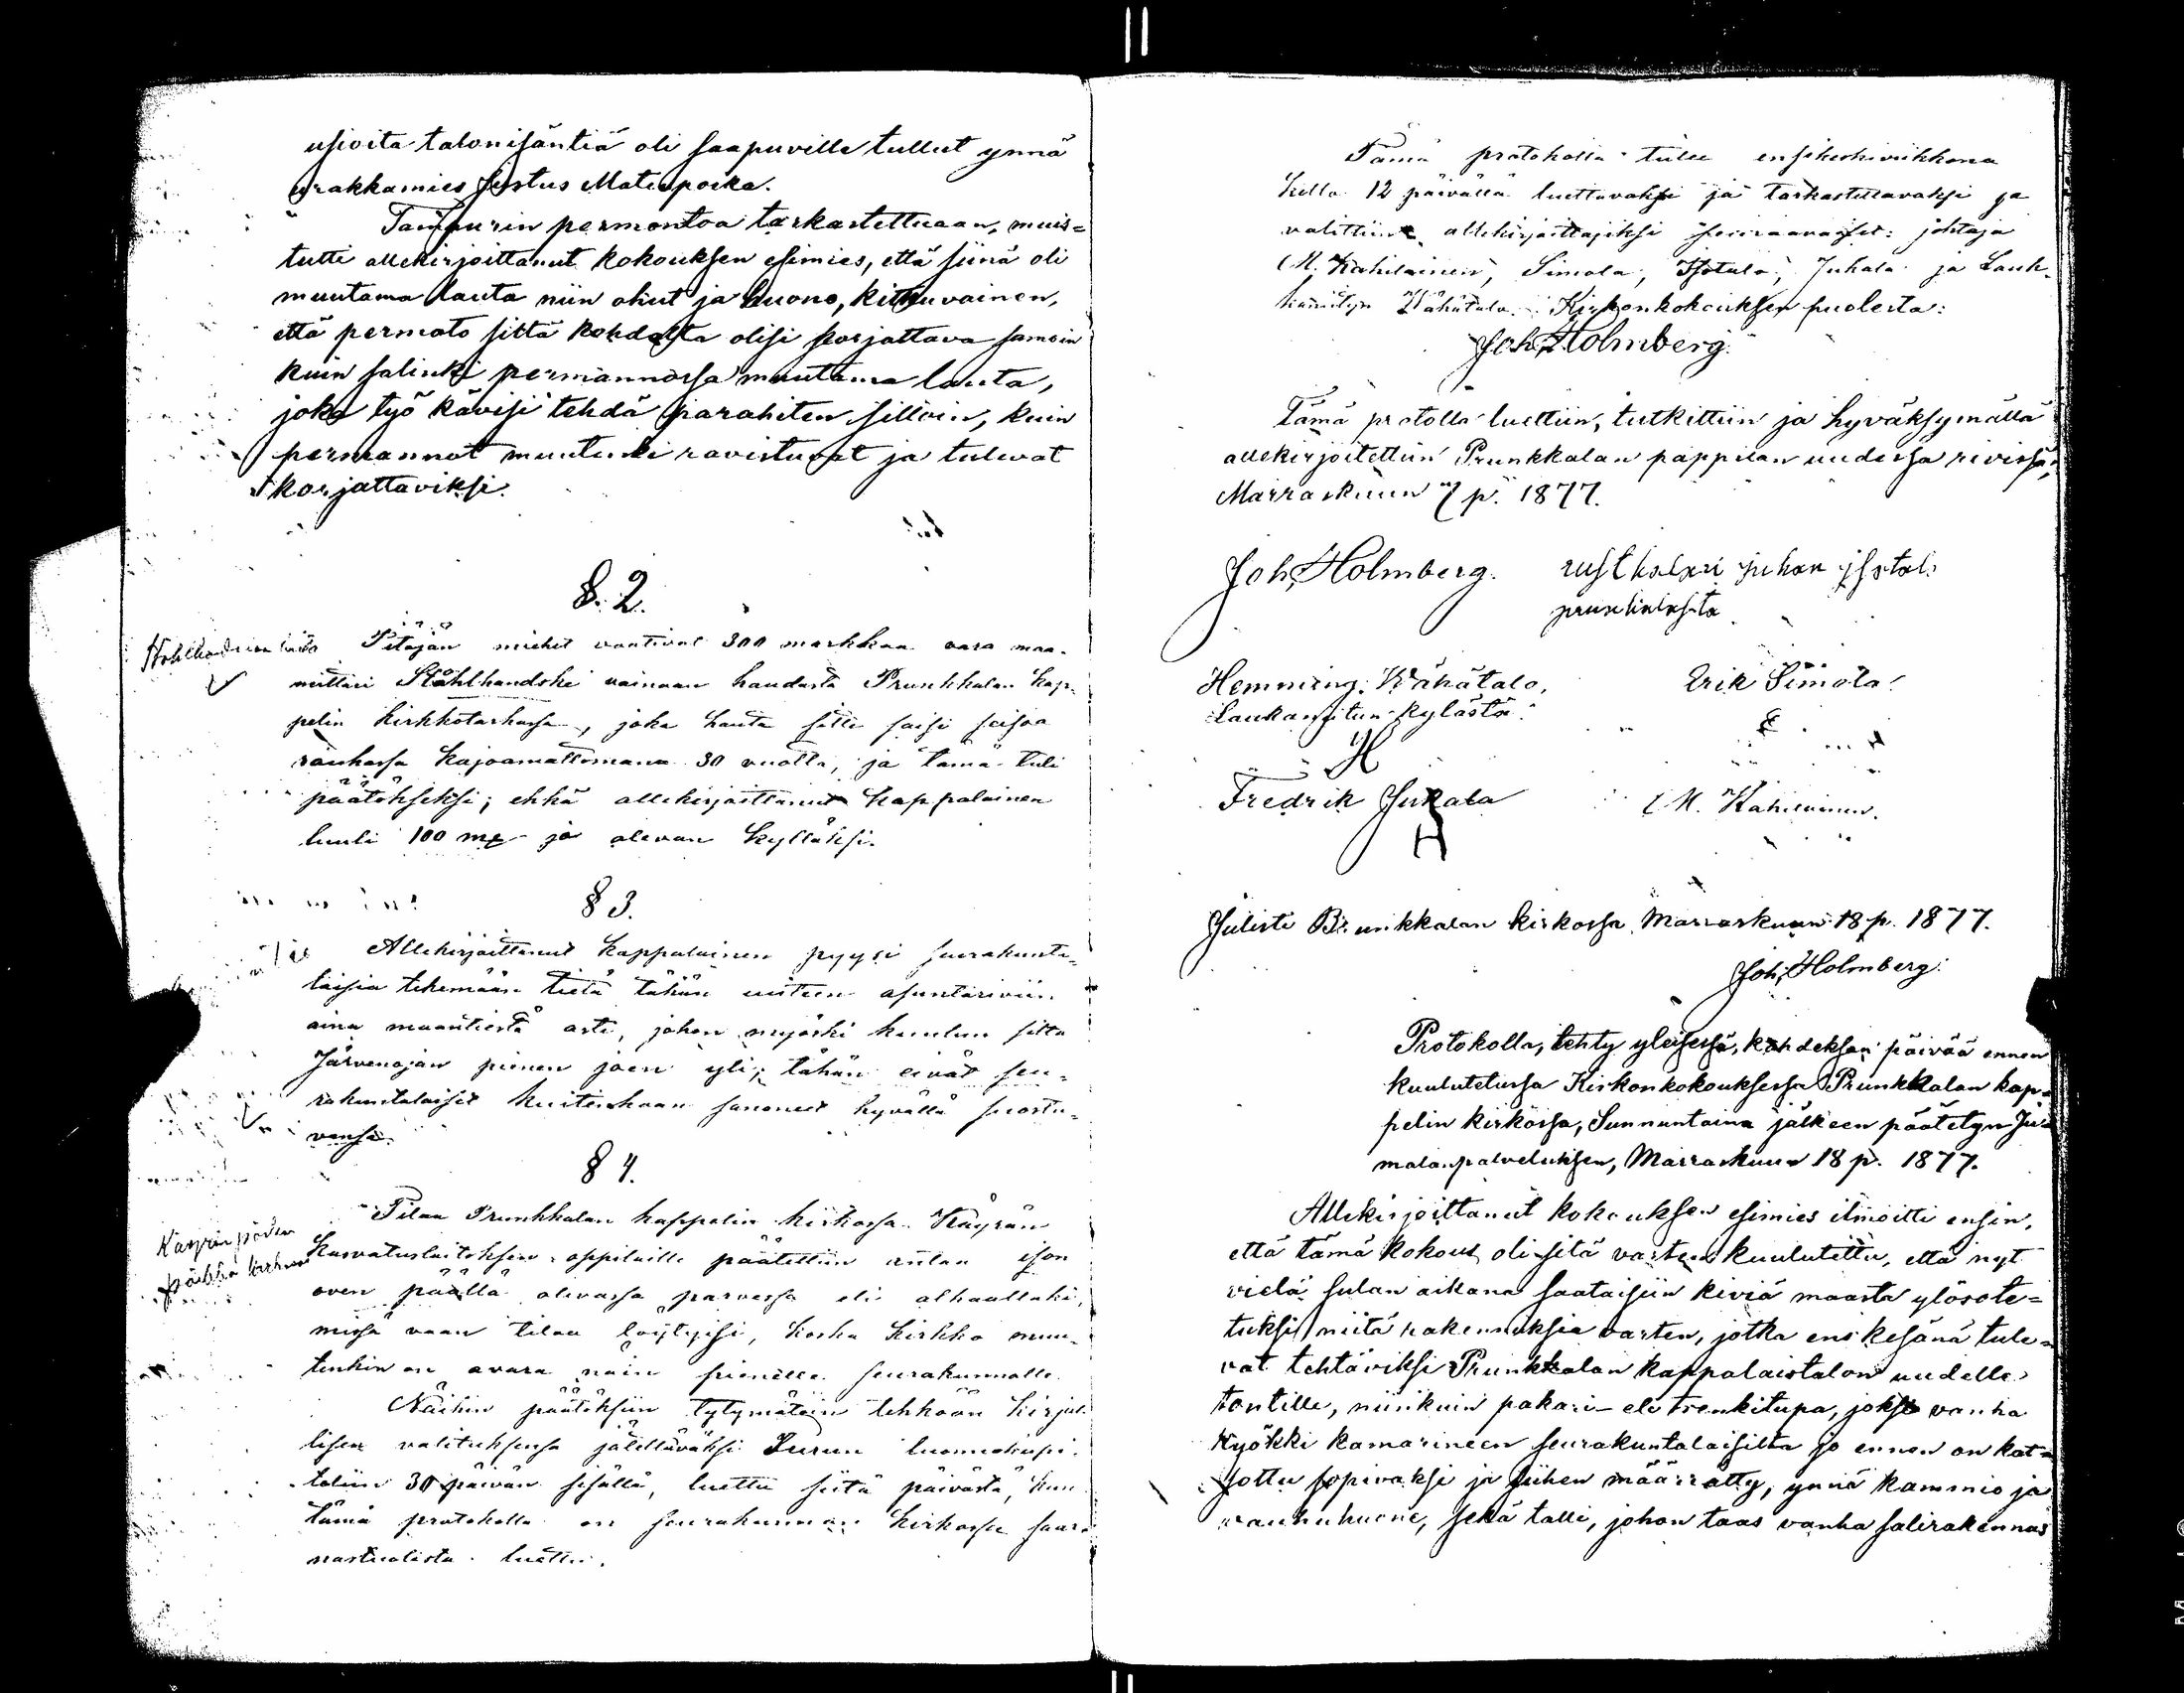 usioita talonisäntiä oli saapuville tullut ynnä
urakkamies Justus Matinpoika.
Tampurin permontoa tarkastettuaan, muis=
tutti allekirjoittanut kokouksen esimies, että siinä oli
muutama lauta niin ohut ja huono, kitkuvainen,
että permato siltä kohdalta olisi korjattava samoin
kuin salinki permannossa muutama lauta,
joka työ kävisi tehdä parahiten silloin, kuin
permannot muutenki ravistuvat ja tulevat
korjattaviksi.
§. 2.
Pitäjän miehet vaativat 300 markkaa vara maa-
mittari Stålhandski vainaan haudasta Prunkkalan kap-
pelin kirkkotarhassa, joka hauta sitte saisi seisoa
rauhassa kajoamattomana 30 vuotta, ja tämä tuli
päätökseksi; ehkä allekirjoittanut kappalainen
luuli 100 mg jo olevan kylläksi.
§ 3.
Allekirjoittanut kappalainen pyysi seurakunta-
laisia tekemään tietä tähän uuteen asuntoriviin
aina maantiestä asti, johon myöski kuuluu silta
Järvenojan pienen joen yli; tähän eivät seu-
rakuntalaiset kuitenkaan sanoneet hyvällä suostu-
vansa.
§ 4.
Käyrän pöydän
paikka kirkossa
Tilaa Prunkkalan kappelin kirkossa Käyrän
kasvatuslaitoksen oppilaille päätettiin antaa ison
oven päällä olevassa parvessa eli alhaallaki,
missä vaan tilaa löytyisi, koska kirkko muu-
tenkin on avara näin pienelle seurakunnalle.
Näihin päätöksiin tytymätöin tehköön kirjal-
lisen valituksensa jätettäväksi Turun tuomiokapi-
toliin 30 päivän sisällä, luettu siitä päivästä, kun
tämä protokolla on seurakunnan kirkossa saar-
nastuolista luettu.
Tämä protokolla tulee ensikeskiviikkona
kello 12 päivällä luettavaksi ja tarkastettavaksi ja
valittiin allekirjoittajiksi seuraavaiset: johtaja
M. Kahilainen, Simola, Isotalo, Jukala ja Lauk-
kaniityn Wähätalo. Kirkonkokouksen puolesta:
Joh. Holmberg.
Tämä protolla luettiin, tutkittiin ja hyväksymällä
allekirjoitettiin Prunkkalan pappilan uudessa rivissä,
Marraskuun 7 p. 1877.
Joh. Holmberg. rusthalari juhan isotalo
prunkkalasta
Hemming Wähätalo, Erik Simola
Laukaniitun kylästä.
H
Fredrik Jukala M. Kahilainen.
H
Julisti Brunkkalan kirkossa Marraskuun 18 p. 1877.
Joh. Holmberg.
Protokolla, tehty yleisessä, kahdeksan päivää ennen
kuulutetussa Kirkonkokouksessa Prunkkalan kap-
pelin kirkossa, Sunnuntaina jälkeen päätetyn Ju-
malanpalveluksen, Marraskuun 18 p. 1877.
Allekirjoittanut kokouksen esimies ilmoitti ensin,
että tämä kokous oli sitä varten kuulutettu, että nyt
vielä sulan aikana saataisiin kiviä maasta ylösote=
tuksi niitä rakennuksia varten, jotka ens kesänä tule=
vat tehtäviksi Prunkkalan Kappalaistalon uudelle
tontille, niinkuin pakari- eli trenkitupa, joksi vanha
kyökki kamarineen seurakuntalaisilta jo ennen on kat=
sottu sopivaksi ja siihen määrätty, ynnä kammio ja
vaunuhuone, sekä talli, johon taas vanha salirakennus